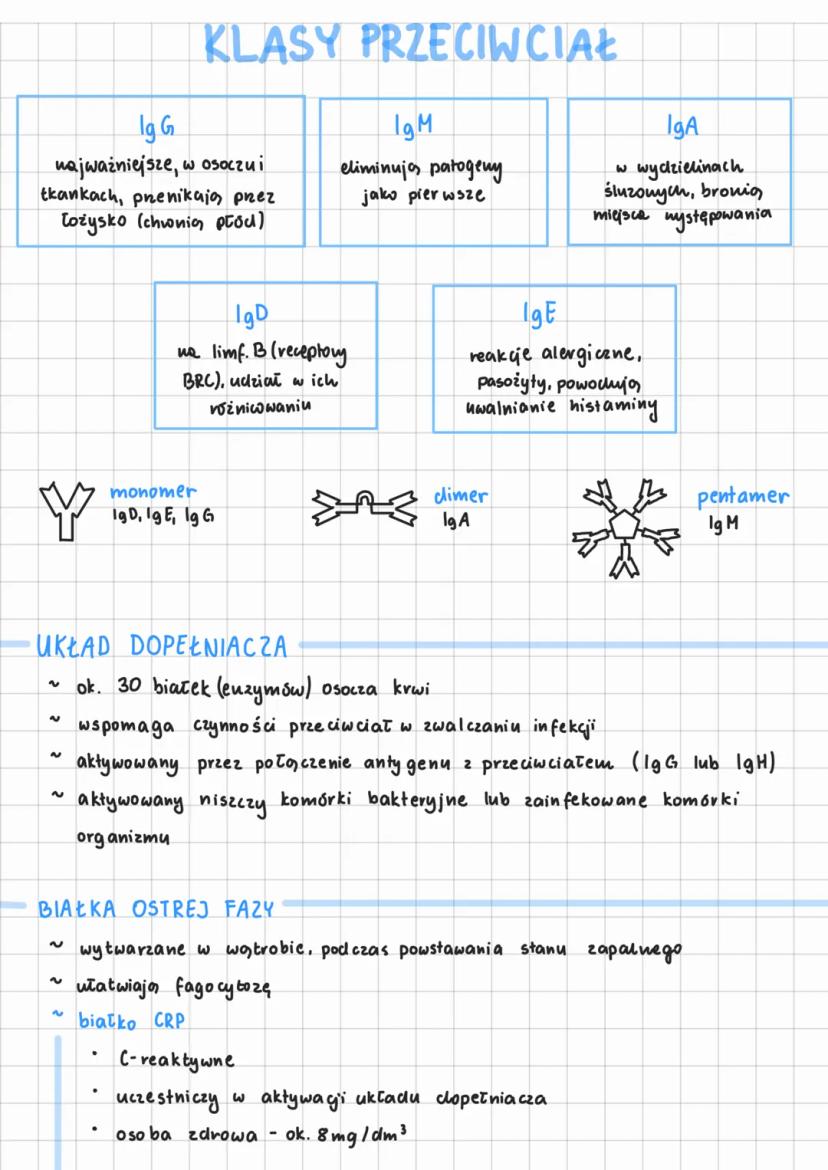 KLASY PRZECIWCIAŁ
IgG
najważniejsze, w osoczu i
tkankach, przenikają przez
łożysko (chronią płód)
IgM
eliminują patogeny
jako pierwsze
IgA
w wydzielinach
śluzowych, bronią
miejsca występowania
IgD
na limf. B (receptory
BRC), udział w ich
różnicowaniu
IgE
reakcje alergiczne,
pasożyty, powodują
uwalnianie histaminy
monomer
IgD, IgE, IgG
dimer
IgA
pentamer
IgM
UKŁAD DOPEŁNIACZA
~ ok. 30 białek (enzymów) osocza krwi
~ wspomaga czynności przeciwciał w zwalczaniu infekcji
~ aktywowany przez połączenie antygenu z przeciwciałem (IgG lub IgH)
~ aktywowany niszczy komórki bakteryjne lub zainfekowane komórki
organizmu
BIAŁKA OSTREJ FAZY
~ wytwarzane w wątrobie, podczas powstawania stanu zapalnego
~ ułatwiają fagocytozę
~ białko CRP
• C-reaktywne
• uczestniczy w aktywacji układu dopełniacza
• osoba zdrowa - ok. 8mg/dm³